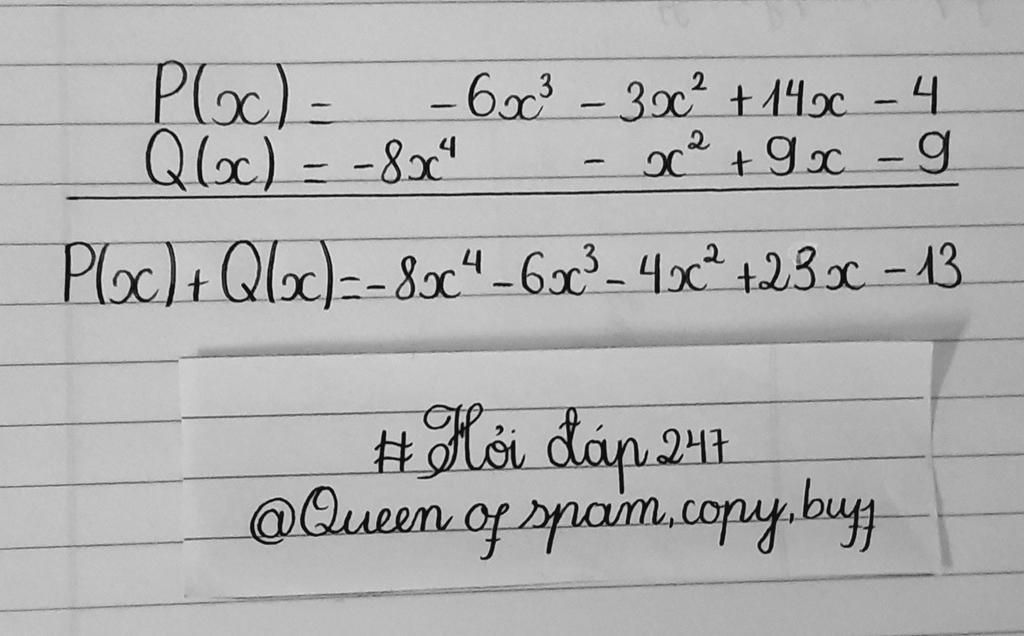 P(x) = -6x³ - 3x² + 14x - 4
Q(x) = -8x⁴ - x² + 9x - 9
P(x) + Q(x) = -8x⁴ - 6x³ - 4x² + 23x - 13
# Hỏi đáp 247
@Queen of spam, copy, buff